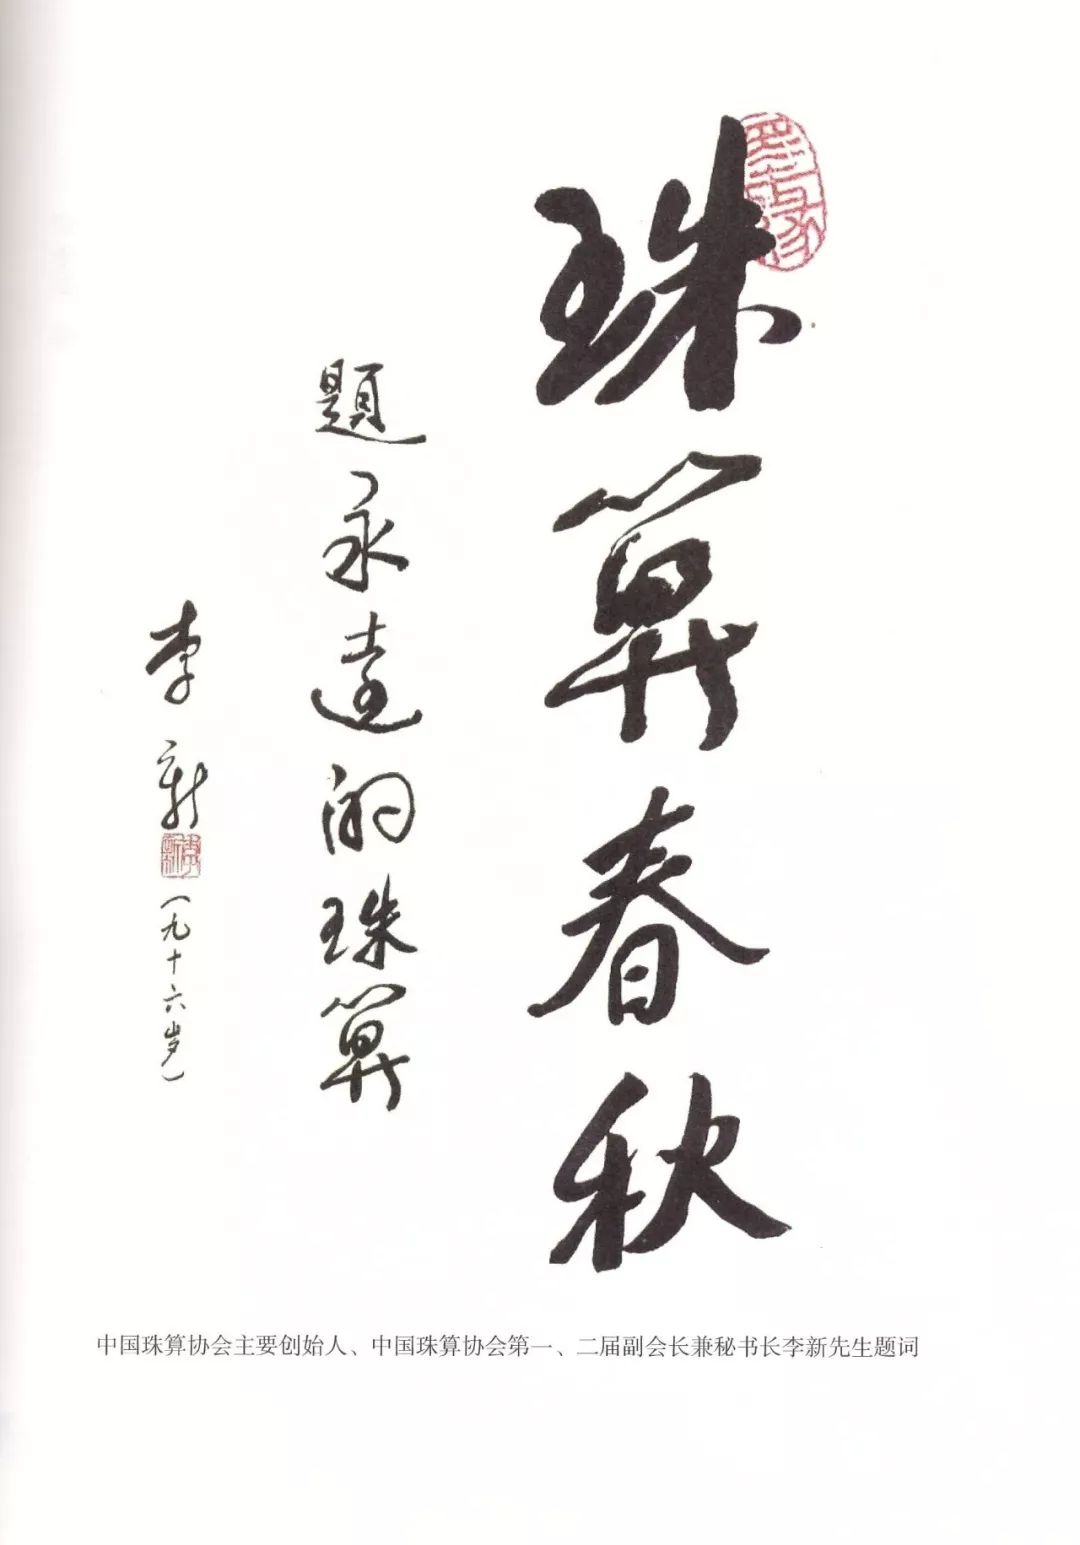 珠算春秋
題永遠的珠算
李新
（九十六岁）
中国珠算协会主要创始人、中国珠算协会第一、二届副会长兼秘书长李新先生题词